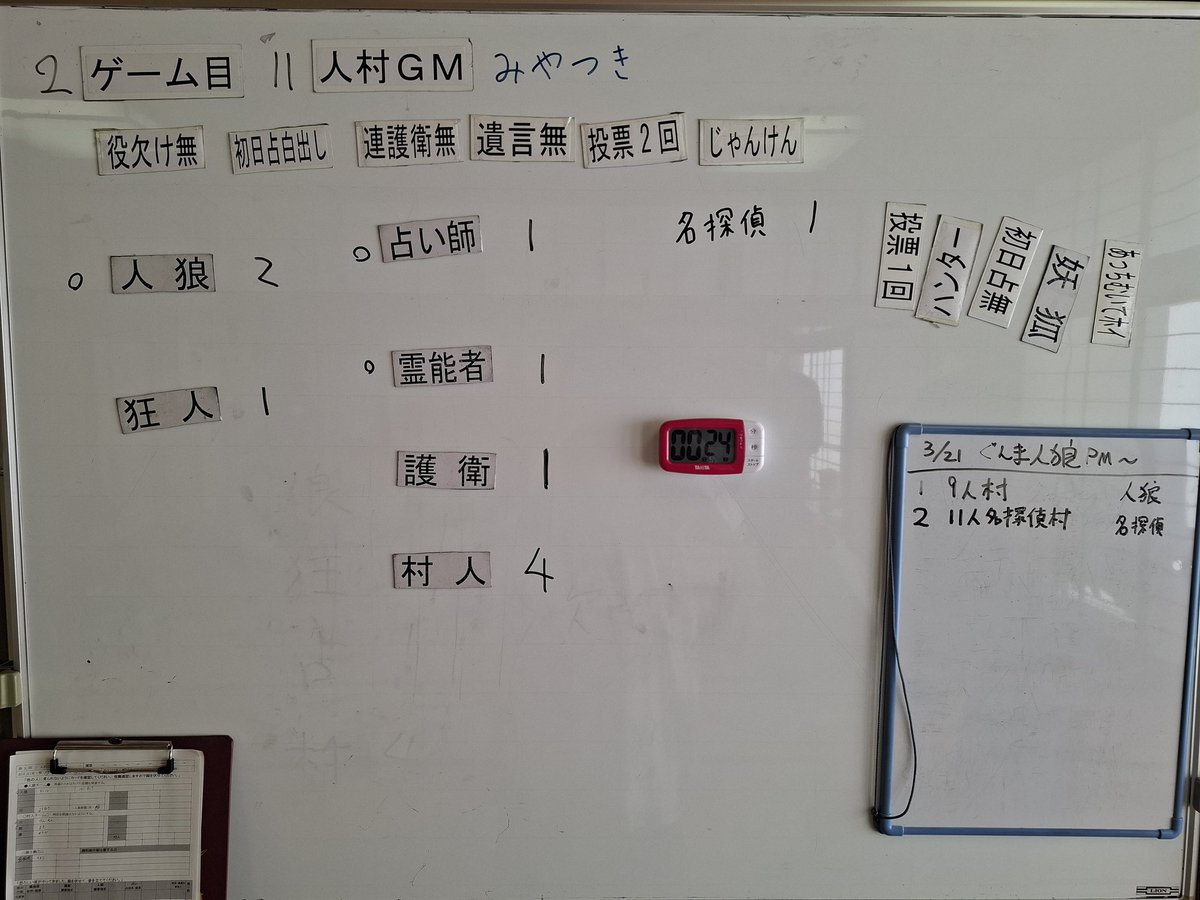 2 ゲーム目 11 人村GM みやつき
役欠け無 初日占白出し 連護衛無 遺言無 投票2回 じゃんけん
○ 人狼 2
狂人 1
○ 占い師 1
○ 霊能者 1
護衛 1
村人 4
名探偵 1
投票1回
ハンター
初日占無
妖狐
あっちむいてホイ
00 24
TANITA
3/21 ぐんま人狼PM〜
1 9人村 人狼
2 11人名探偵村 名探偵
LION